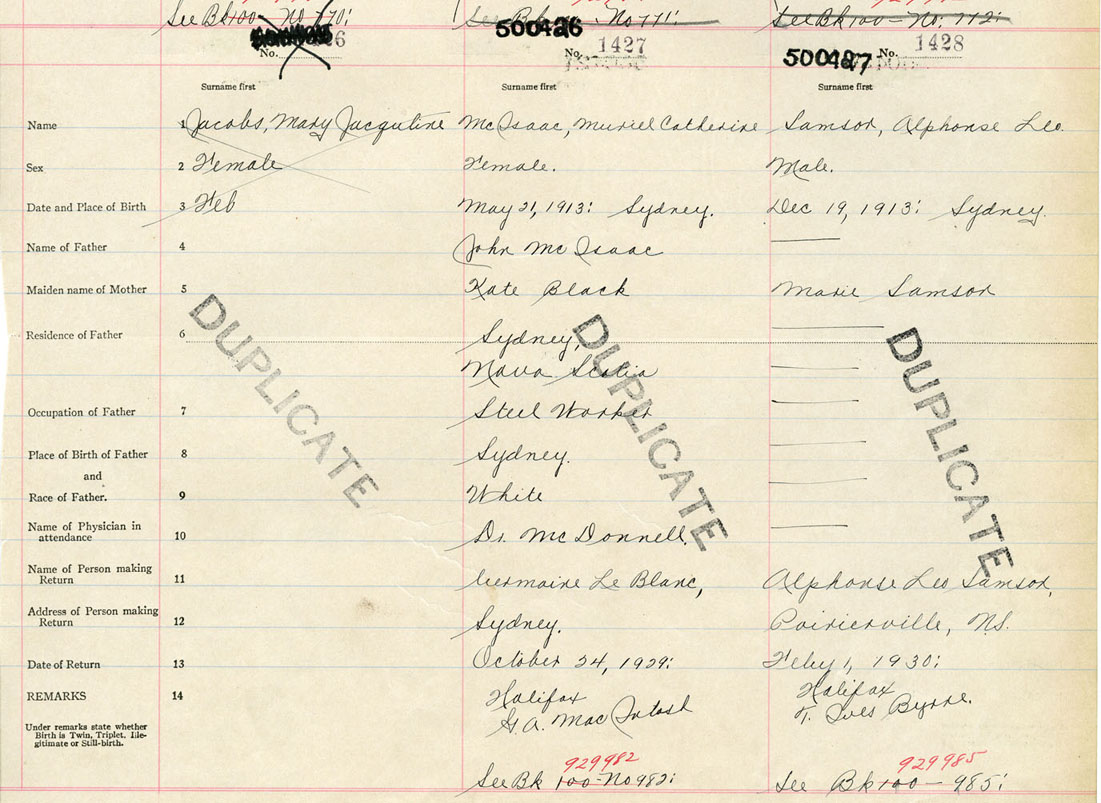 See Bk 100 - No 770:
See Bk - No 771:
See Bk 100 - No. 772:
No. 1426
500426
No. 1427
500427
No. 1428
Surname first
Surname first
Surname first
Name 1 Jacobs, Mary Jacqutine McIsaac, Muriel Catherine Samson, Alphonse Leo.
Sex 2 Female Female. Male.
Date and Place of Birth 3 Feb May 21, 1913: Sydney. Dec 19, 1913: Sydney.
Name of Father 4 John McIsaac
Maiden name of Mother 5 Kate Black Marie Samson
Residence of Father 6 Sydney,
Nova Scotia
Occupation of Father 7 Steel Worker
Place of Birth of Father 8 Sydney.
and
Race of Father. 9 White
Name of Physician in
attendance 10 Dr. McDonnell.
Name of Person making
Return 11 Germaine Le Blanc, Alphonse Leo Samson,
Address of Person making
Return 12 Sydney. Poirierville, N.S.
Date of Return 13 October 24, 1929: Feby 1, 1930:
REMARKS 14 Halifax Halifax
G.A. MacIntosh Ives Byrne.
Under remarks state whether
Birth is Twin, Triplet, Ille-
gitimate or Still-birth.
929982
See Bk 100 - No 982:
929985
See Bk 100 - 985:
DUPLICATE
DUPLICATE
DUPLICATE